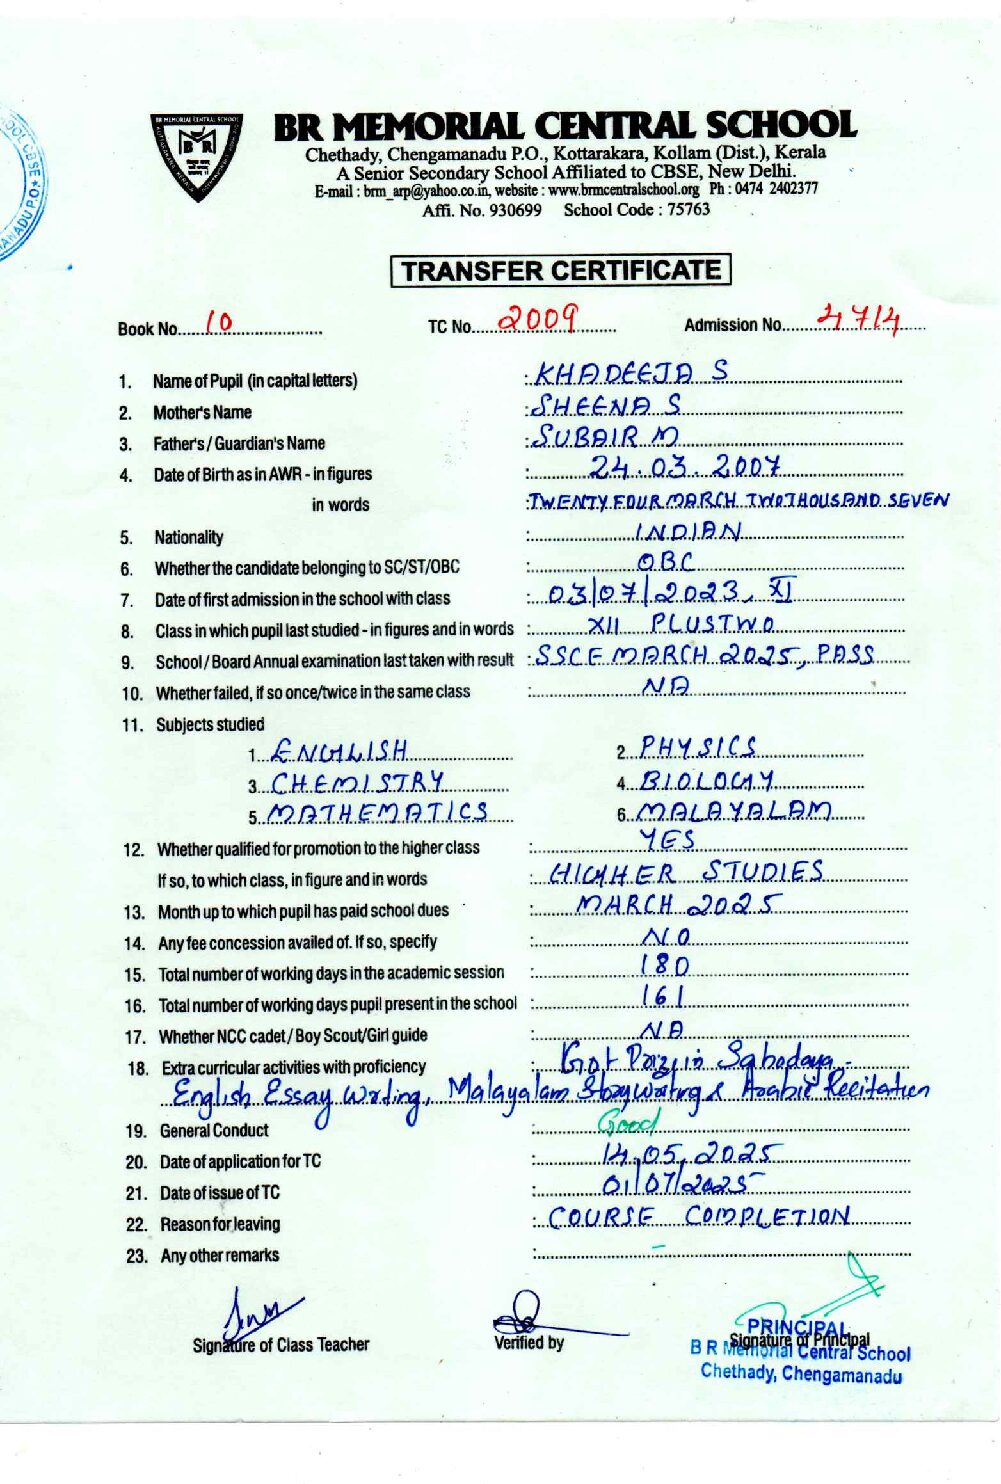 BR MEMORIAL CENTRAL SCHOOL
BR MEMORIAL CENTRAL SCHOOL
Chethady, Chengamanadu P.O., Kottarakara, Kollam (Dist.), Kerala
A Senior Secondary School Affiliated to CBSE, New Delhi.
E-mail : brm_arp@yahoo.co.in, website : www.brmcentralschool.org Ph : 0474 2402377
Affi. No. 930699 School Code : 75763
TRANSFER CERTIFICATE
Book No. 10 TC No. 2009 Admission No. 4714
1. Name of Pupil (in capital letters) : KHADEEJA S
2. Mother's Name : SHEENA S
3. Father's / Guardian's Name : SUBAIR M
4. Date of Birth as in AWR - in figures : 24.03.2007
in words : TWENTY FOUR MARCH TWO THOUSAND SEVEN
5. Nationality : INDIAN
6. Whether the candidate belonging to SC/ST/OBC : OBC
7. Date of first admission in the school with class : 03/07/2023, XI
8. Class in which pupil last studied - in figures and in words : XII PLUSTWO
9. School / Board Annual examination last taken with result : SSCE MARCH 2025, PASS
10. Whether failed, if so once/twice in the same class : NA
11. Subjects studied
1. ENGLISH 2. PHYSICS
3. CHEMISTRY 4. BIOLOGY
5. MATHEMATICS 6. MALAYALAM
12. Whether qualified for promotion to the higher class : YES
If so, to which class, in figure and in words : HIGHER STUDIES
13. Month up to which pupil has paid school dues : MARCH 2025
14. Any fee concession availed of. If so, specify : NO
15. Total number of working days in the academic session : 180
16. Total number of working days pupil present in the school : 161
17. Whether NCC cadet / Boy Scout/Girl guide : NA
18. Extra curricular activities with proficiency : Got Prize in Sahodaya -
English Essay Writing, Malayalam Story writing & Arabic Recitation
19. General Conduct : Good
20. Date of application for TC : 14.05.2025
21. Date of issue of TC : 01/07/2025
22. Reason for leaving : COURSE COMPLETION
23. Any other remarks : –
Signature of Class Teacher Verified by Signature of Principal
PRINCIPAL
B R Memorial Central School
Chethady, Chengamanadu